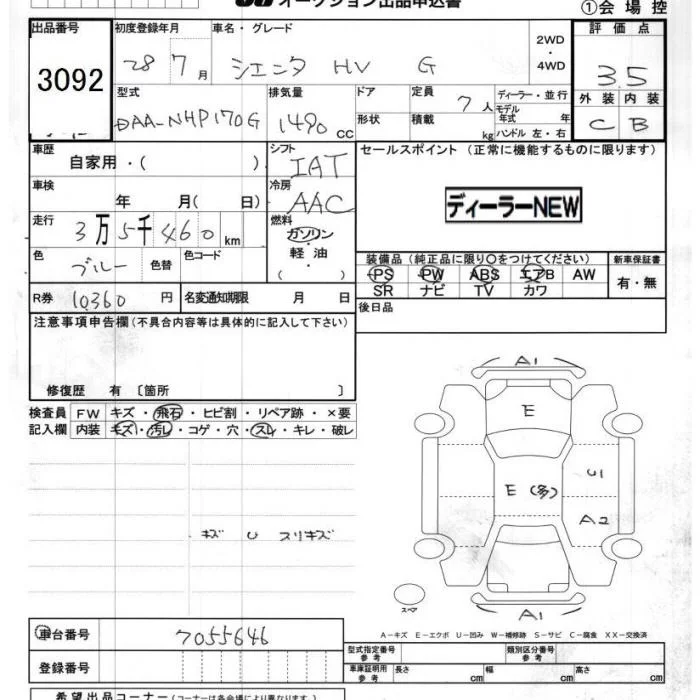 オークション出品申込書
①会場控
出品番号
3092
初度登録年月
28 7月
車名・グレード
シエンタ HV G
2WD
・
4WD
評価点
3.5
外装 内装
C B
型式
DAA-NHP170G
排気量
1490 CC
ドア
形状
定員
7人
積載
kg
ディーラー・並行
モデル年式 年
ハンドル 左・右
車歴
自家用・( )
シフト
IAT
セールスポイント (正常に機能するものに限ります)
ディーラーNEW
車検
年 月( 日)
冷房
AAC
走行
3万5千460km
燃料
ガソリン
・
軽油
( )
色
ブルー
色替
色コード
装備品(純正品に限り○をつけてください)
PS PW ABS エアB AW
SR ナビ TV カワ
新車保証書
有・無
R券
10360円
名変通知期限 月 日
後日品
注意事項申告欄(不具合内容等は具体的に記入して下さい)
修復歴 有 〔箇所 〕
検査員
記入欄
FW キズ・飛石・ヒビ割・リペア跡・×要
内装 キズ・汚レ・コゲ・穴・スレ・キレ・破レ
キズ U スリキズ
A1
E
E(多)
U1
A2
A1
スペア
A-キズ E-エクボ U-凹み W-補修跡 S-サビ C-腐食 XX-交換済
車台番号
7055646
登録番号
型式指定番号
参考
類別区分番号
参考
車庫証明用
参考
長さ cm
幅 cm
高さ cm
希望出品コーナー(コーナーは各会場により異なります。)